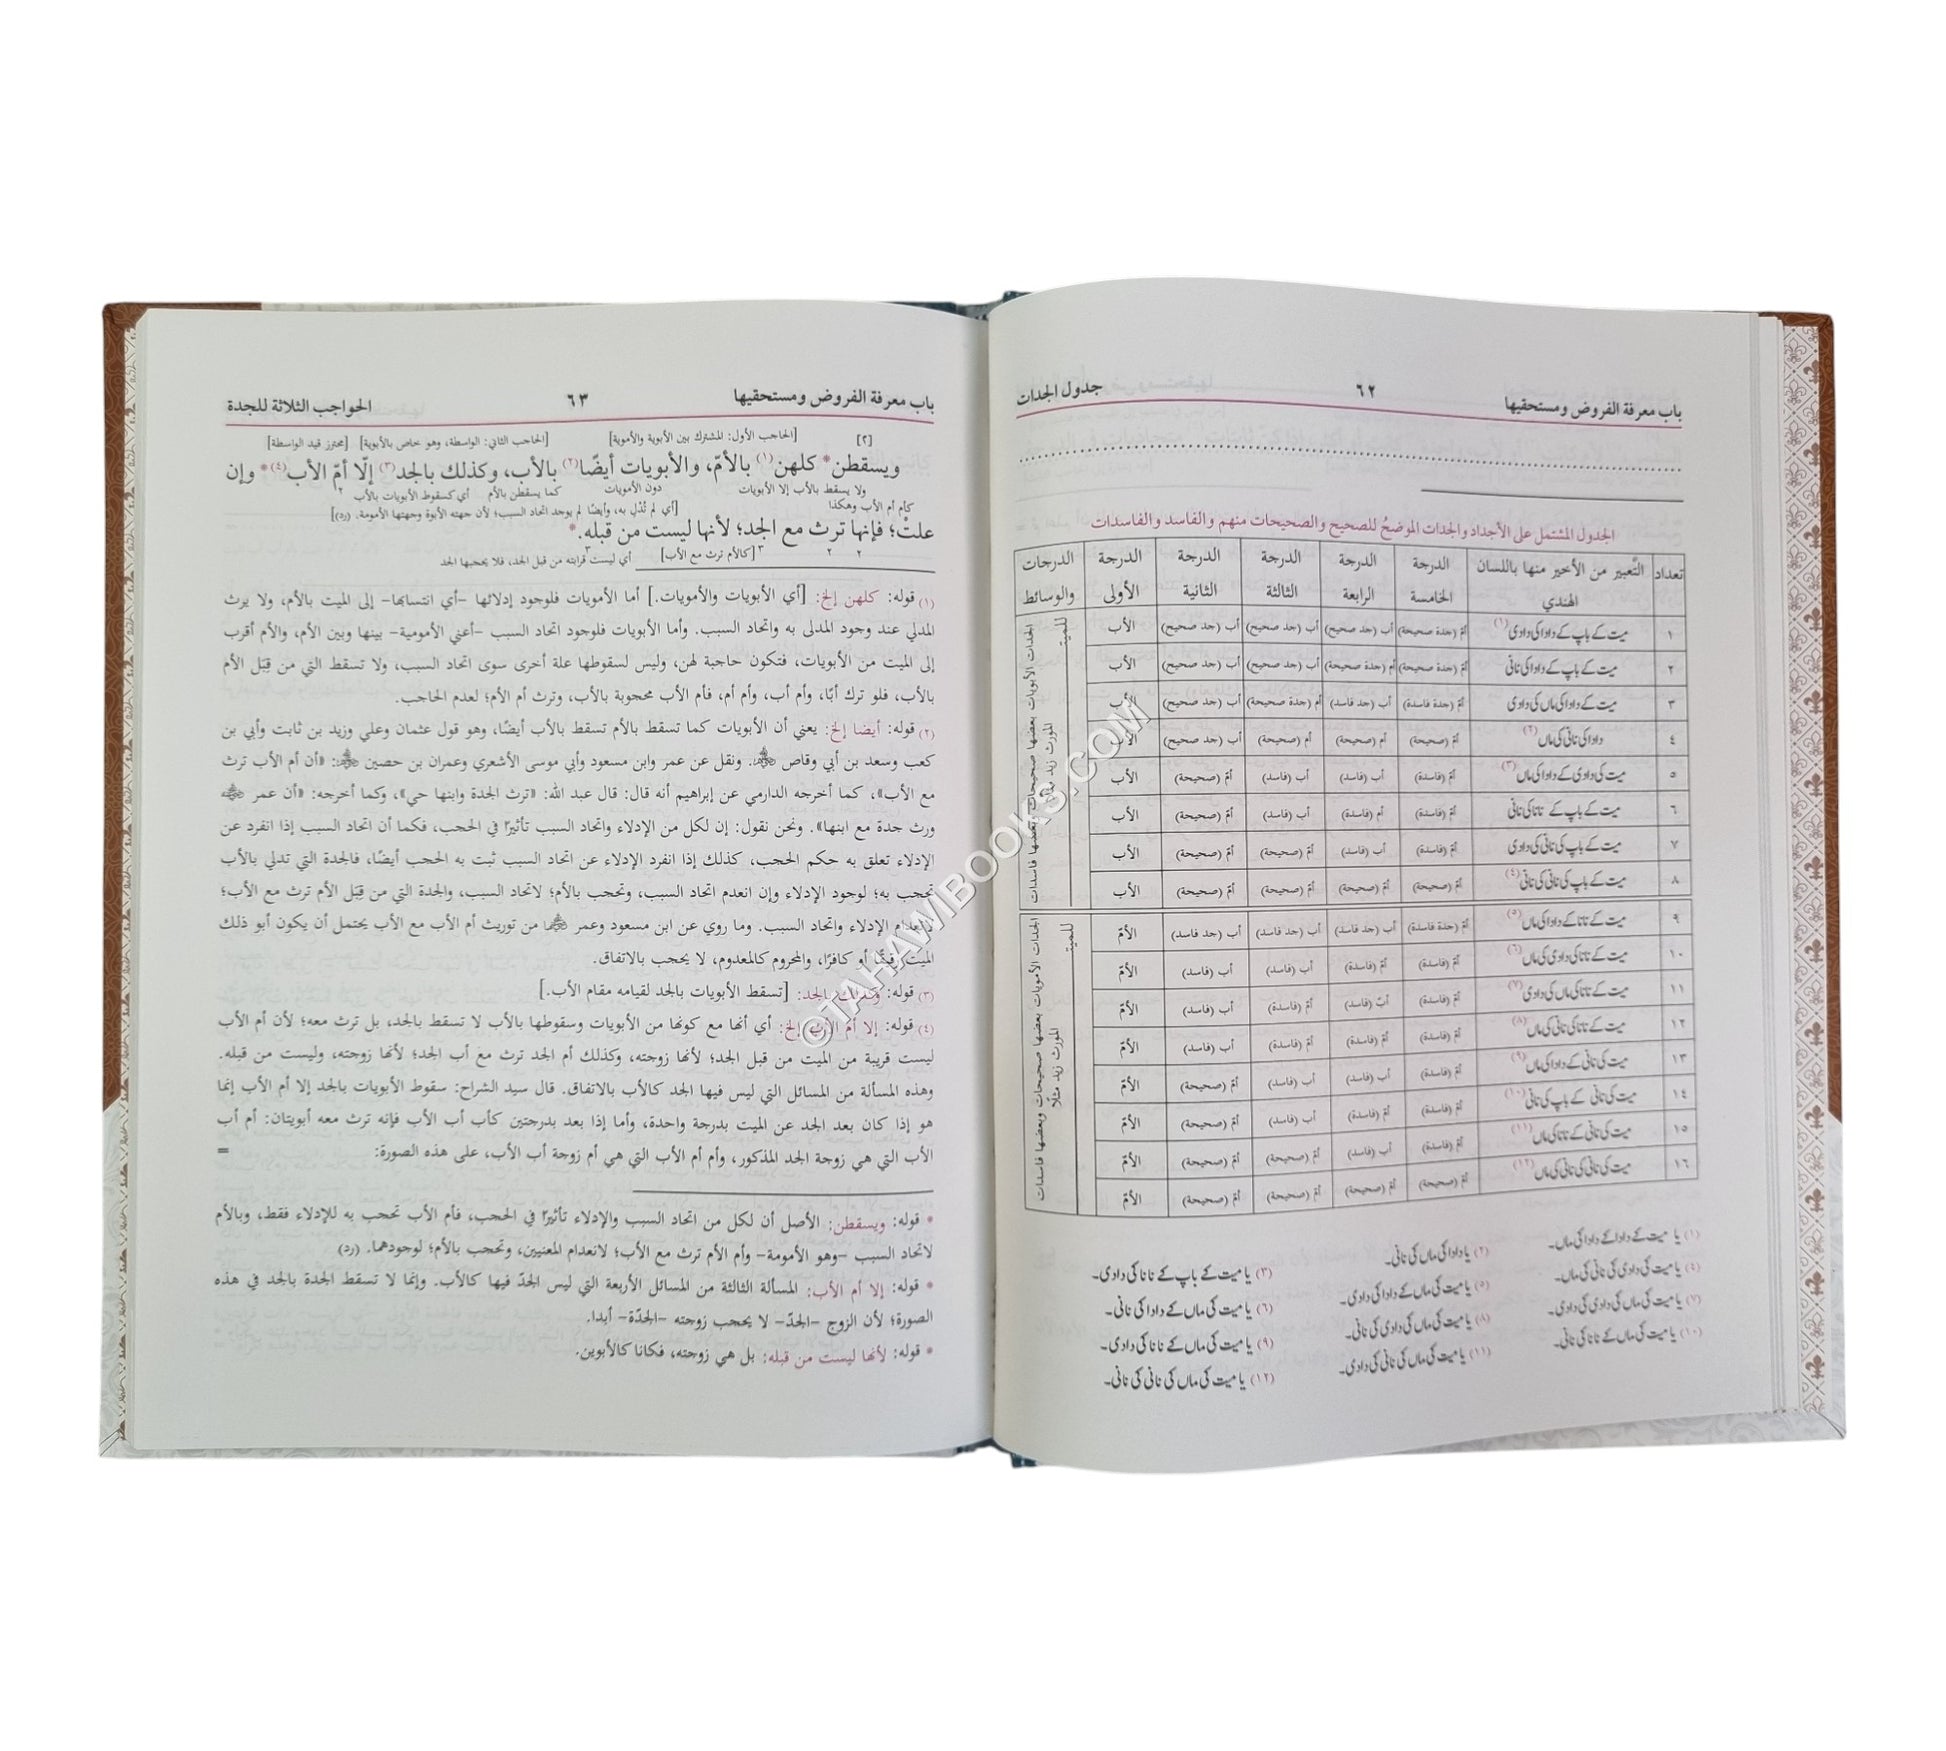 باب معرفة الفروض ومستحقيها ٦٢ جدول الجدات
الجدول المشتمل على الأجداد والجدات الموضحُ للصحيح والصحيحات منهم والفاسد والفاسدات
تعداد التَّعبير من الأخير منها باللسان الهندي الدرجة الخامسة الدرجة الرابعة الدرجة الثالثة الدرجة الثانية الدرجة الأولى الدرجات والوسائط
١ میت کے باپ کے دادا کی دادی (١) أمّ (جدة صحيحة) أب (جد صحيح) أب (جد صحيح) أب (جد صحيح) الأب
٢ میت کے باپ کے دادا کی نانی أمّ (جدة صحيحة) أم (جدة صحيحة) أب (جد صحيح) أب (جد صحيح) الأب
٣ میت کے دادا کی ماں کی دادی أمّ (جدة فاسدة) أب (جد فاسد) أم (جدة صحيحة) أب (جد صحيح) الأب
٤ دادا کی نانی کی ماں (٢) أمّ (صحيحة) أم (صحيحة) أم (صحيحة) أب (جد صحيح) الأب
٥ میت کی دادی کے دادا کی ماں (٣) أمّ (فاسدة) أب (فاسد) أب (فاسد) أمّ (صحيحة) الأب
٦ میت کے باپ کے نانا کی نانی أمّ (فاسدة) أم (فاسدة) أب (فاسد) أمّ (صحيحة) الأب
٧ میت کے باپ کی نانی کی دادی أمّ (فاسدة) أب (فاسد) أمّ (صحيحة) أمّ (صحيحة) الأب
٨ میت کے باپ کی نانی کی نانی (٤) أمّ (صحيحة) أمّ (صحيحة) أمّ (صحيحة) أمّ (صحيحة) الأب
٩ میت کے نانا کے دادا کی ماں (٥) أمّ (جدة فاسدة) أب (جد فاسد) أب (جد فاسد) أب (جد فاسد) الأمّ
١٠ میت کے نانا کی دادی کی ماں (٦) أمّ (فاسدة) أمّ (فاسدة) أب (فاسد) أب (فاسد) الأمّ
١١ میت کے نانا کی ماں کی دادی (٧) أمّ (فاسدة) أبّ (فاسد) أمّ (فاسدة) أب (فاسد) الأمّ
١٢ میت کے نانا کی نانی کی ماں (٨) أمّ (فاسدة) أمّ (فاسدة) أمّ (فاسدة) أب (فاسد) الأمّ
١٣ میت کی نانی کے دادا کی ماں (٩) أمّ (فاسدة) أب (فاسد) أب (فاسد) أمّ (صحيحة) الأمّ
١٤ میت کی نانی کے باپ کی نانی (١٠) أمّ (فاسدة) أمّ (فاسدة) أب (فاسد) أمّ (صحيحة) الأمّ
١٥ میت کی نانی کے نانا کی ماں (١١) أمّ (فاسدة) أب (فاسد) أمّ (صحيحة) أمّ (صحيحة) الأمّ
١٦ میت کی نانی کی نانی کی ماں (١٢) أمّ (صحيحة) أمّ (صحيحة) أمّ (صحيحة) أمّ (صحيحة) الأمّ
للميت
الجدات الأبويات بعضها صحيحات بعضها فاسدات
المورث زيد
للميت
الجدات الأمويات بعضها صحيحات وبعضها فاسدات
المورث زيد مثلًا
(١) یا میت کے دادا کے دادا کی ماں۔ (٢) یا دادا کی ماں کی نانی۔ (٣) یا میت کے باپ کے نانا کی دادی۔
(٤) یا میت کی دادی کی نانی کی ماں۔ (٥) یا میت کی ماں کے دادا کی دادی۔ (٦) یا میت کی ماں کے دادا کی نانی۔
(٧) یا میت کی ماں کی دادی کی دادی۔ (٨) یا میت کی ماں کی دادی کی نانی۔ (٩) یا میت کی ماں کے نانا کی دادی۔
(١٠) یا میت کی ماں کے نانا کی نانی۔ (١١) یا میت کی ماں کی نانی کی دادی۔ (١٢) یا میت کی ماں کی نانی کی نانی۔
باب معرفة الفروض ومستحقيها ٦٣ الحواجب الثلاثة للجدة
[٢] [الحاجب الأول: المشترك بين الأبوية والأموية] [الحاجب الثاني: الواسطة، وهو خاص بالأبوية] [محترز قيد الواسطة]
ويسقطن* كلهن(١) بالأمّ، والأبويات أيضًا(٢) بالأب، وكذلك بالجد(٣) إلّا أمّ الأب(٤)* وإن
ولا يسقط بالأب إلا الأبويات دون الأمويات كما يسقطن بالأم أي كسقوط الأبويات بالأب ٢
كأم أم الأب وهكذا [أي لم تُدْلِ به، وأيضًا لم يوجد اتحاد السبب؛ لأن جهته الأبوة وجهتها الأمومة. (رد)]
علتْ؛ فإنها ترث مع الجد؛ لأنها ليست من قبله.*
٢ ٢ ٣ [كالأم ترث مع الأب] ٣ أي ليست قرابته من قبل الجد، فلا يحجبها الجد
(١) قوله: كلهن إلخ: [أي الأبويات والأمويات.] أما الأمويات فلوجود إدلائها -أي انتسابها- إلى الميت بالأم، ولا يرث
المدلي عند وجود المدلى به واتحاد السبب. وأما الأبويات فلوجود اتحاد السبب -أعني الأمومية- بينها وبين الأم، والأم أقرب
إلى الميت من الأبويات، فتكون حاجبة لهن، وليس لسقوطها علة أخرى سوى اتحاد السبب، ولا تسقط التي من قِبَل الأم
بالأب، فلو ترك أبًا، وأم أب، وأم أم، فأم الأب محجوبة بالأب، وترث أم الأم؛ لعدم الحاجب.
(٢) قوله: أيضا إلخ: يعني أن الأبويات كما تسقط بالأم تسقط بالأب أيضًا، وهو قول عثمان وعلي وزيد بن ثابت وأبي بن
كعب وسعد بن أبي وقاص ﷺ. ونقل عن عمر وابن مسعود وأبي موسى الأشعري وعمران بن حصين: «أن أم الأب ترث
مع الأب»، كما أخرجه الدارمي عن إبراهيم أنه قال: قال عبد الله: «ترث الجدة وابنها حي»، وكما أخرجه: «أن عمر
ورث جدة مع ابنها». ونحن نقول: إن لكل من الإدلاء واتحاد السبب تأثيرًا في الحجب، فكما أن اتحاد السبب إذا انفرد عن
الإدلاء تعلق به حكم الحجب، كذلك إذا انفرد الإدلاء عن اتحاد السبب ثبت به الحجب أيضًا، فالجدة التي تدلي بالأب
تحجب به؛ لوجود الإدلاء وإن انعدم اتحاد السبب، وتحجب بالأم؛ لاتحاد السبب، والجدة التي من قِبَل الأم ترث مع الأب؛
لانعدام الإدلاء واتحاد السبب. وما روي عن ابن مسعود وعمر من توريث أم الأب مع الأب يحتمل أن يكون أبو ذلك
الميت رقيقًا أو كافرًا، والمحروم كالمعدوم، لا يحجب بالاتفاق.
(٣) قوله: وكذلك بالجد: [تسقط الأبويات بالجد لقيامه مقام الأب.]
(٤) قوله: إلا أمّ الأب إلخ: أي أنها مع كونها من الأبويات وسقوطها بالأب لا تسقط بالجد، بل ترث معه؛ لأن أم الأب
ليست قريبة من الميت من قبل الجد؛ لأنها زوجته، وكذلك أم الجد ترث مع أب الجد؛ لأنها زوجته، وليست من قبله.
وهذه المسألة من المسائل التي ليس فيها الجد كالأب بالاتفاق. قال سيد الشراح: سقوط الأبويات بالجد إلا أم الأب إنما
هو إذا كان بعد الجد عن الميت بدرجة واحدة، وأما إذا بعد بدرجتين كأب أب الأب فإنه ترث معه أبويتان: أم أب
الأب التي هي زوجة الجد المذكور، وأم أم الأب التي هي أم زوجة أب الأب، على هذه الصورة: =
* قوله: ويسقطن: الأصل أن لكل من اتحاد السبب والإدلاء تأثيرًا في الحجب، فأم الأب تحجب به للإدلاء فقط، وبالأم
لاتحاد السبب -وهو الأمومة- وأم الأم ترث مع الأب؛ لانعدام المعنيين، وتحجب بالأم؛ لوجودهما. (رد)
* قوله: إلا أم الأب: المسألة الثالثة من المسائل الأربعة التي ليس الجدّ فيها كالأب. وإنما لا تسقط الجدة بالجد في هذه
الصورة؛ لأن الزوج -الجدّ- لا يحجب زوجته -الجدّة- أبدا.
* قوله: لأنها ليست من قبله: بل هي زوجته، فكانا كالأبوين.
©TAHAWIBOOKS.COM